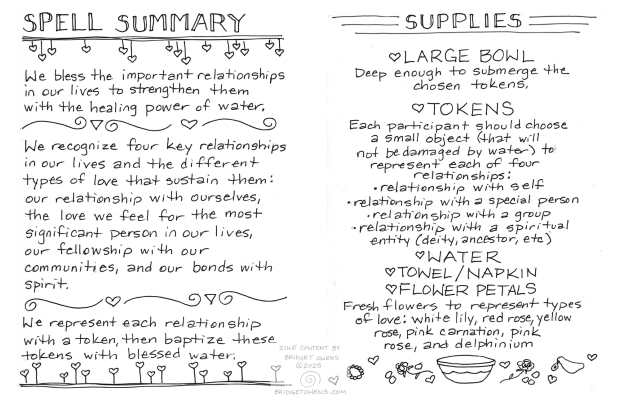 SPELL SUMMARY
We bless the important relationships
in our lives to strengthen them
with the healing power of water.
We recognize four key relationships
in our lives and the different
types of love that sustain them:
our relationship with ourselves,
the love we feel for the most
significant person in our lives,
our fellowship with our
communities, and our bonds with
spirit.
We represent each relationship
with a token, then baptize these
tokens with blessed water.
ZINE CONTENT BY
BRIDGET OWENS
©2025
BRIDGETOWENS.COM
SUPPLIES
♡LARGE BOWL
Deep enough to submerge the
chosen tokens.
♡TOKENS
Each participant should choose
a small object (that will
not be damaged by water) to
represent each of four
relationships:
•relationship with self
•relationship with a special person
•relationship with a group
•relationship with a spiritual
entity (deity, ancestor, etc)
♡WATER
♡TOWEL/NAPKIN
♡FLOWER PETALS
Fresh flowers to represent types
of love: white lily, red rose, yellow
rose, pink carnation, pink
rose, and delphinium